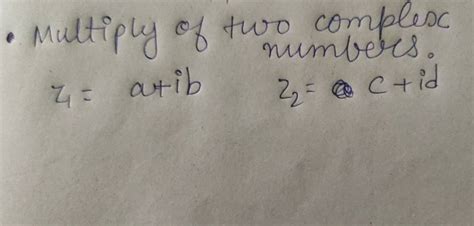 • Multiply of two complex
numbers.
z₁ = a+ib z₂ = c+id